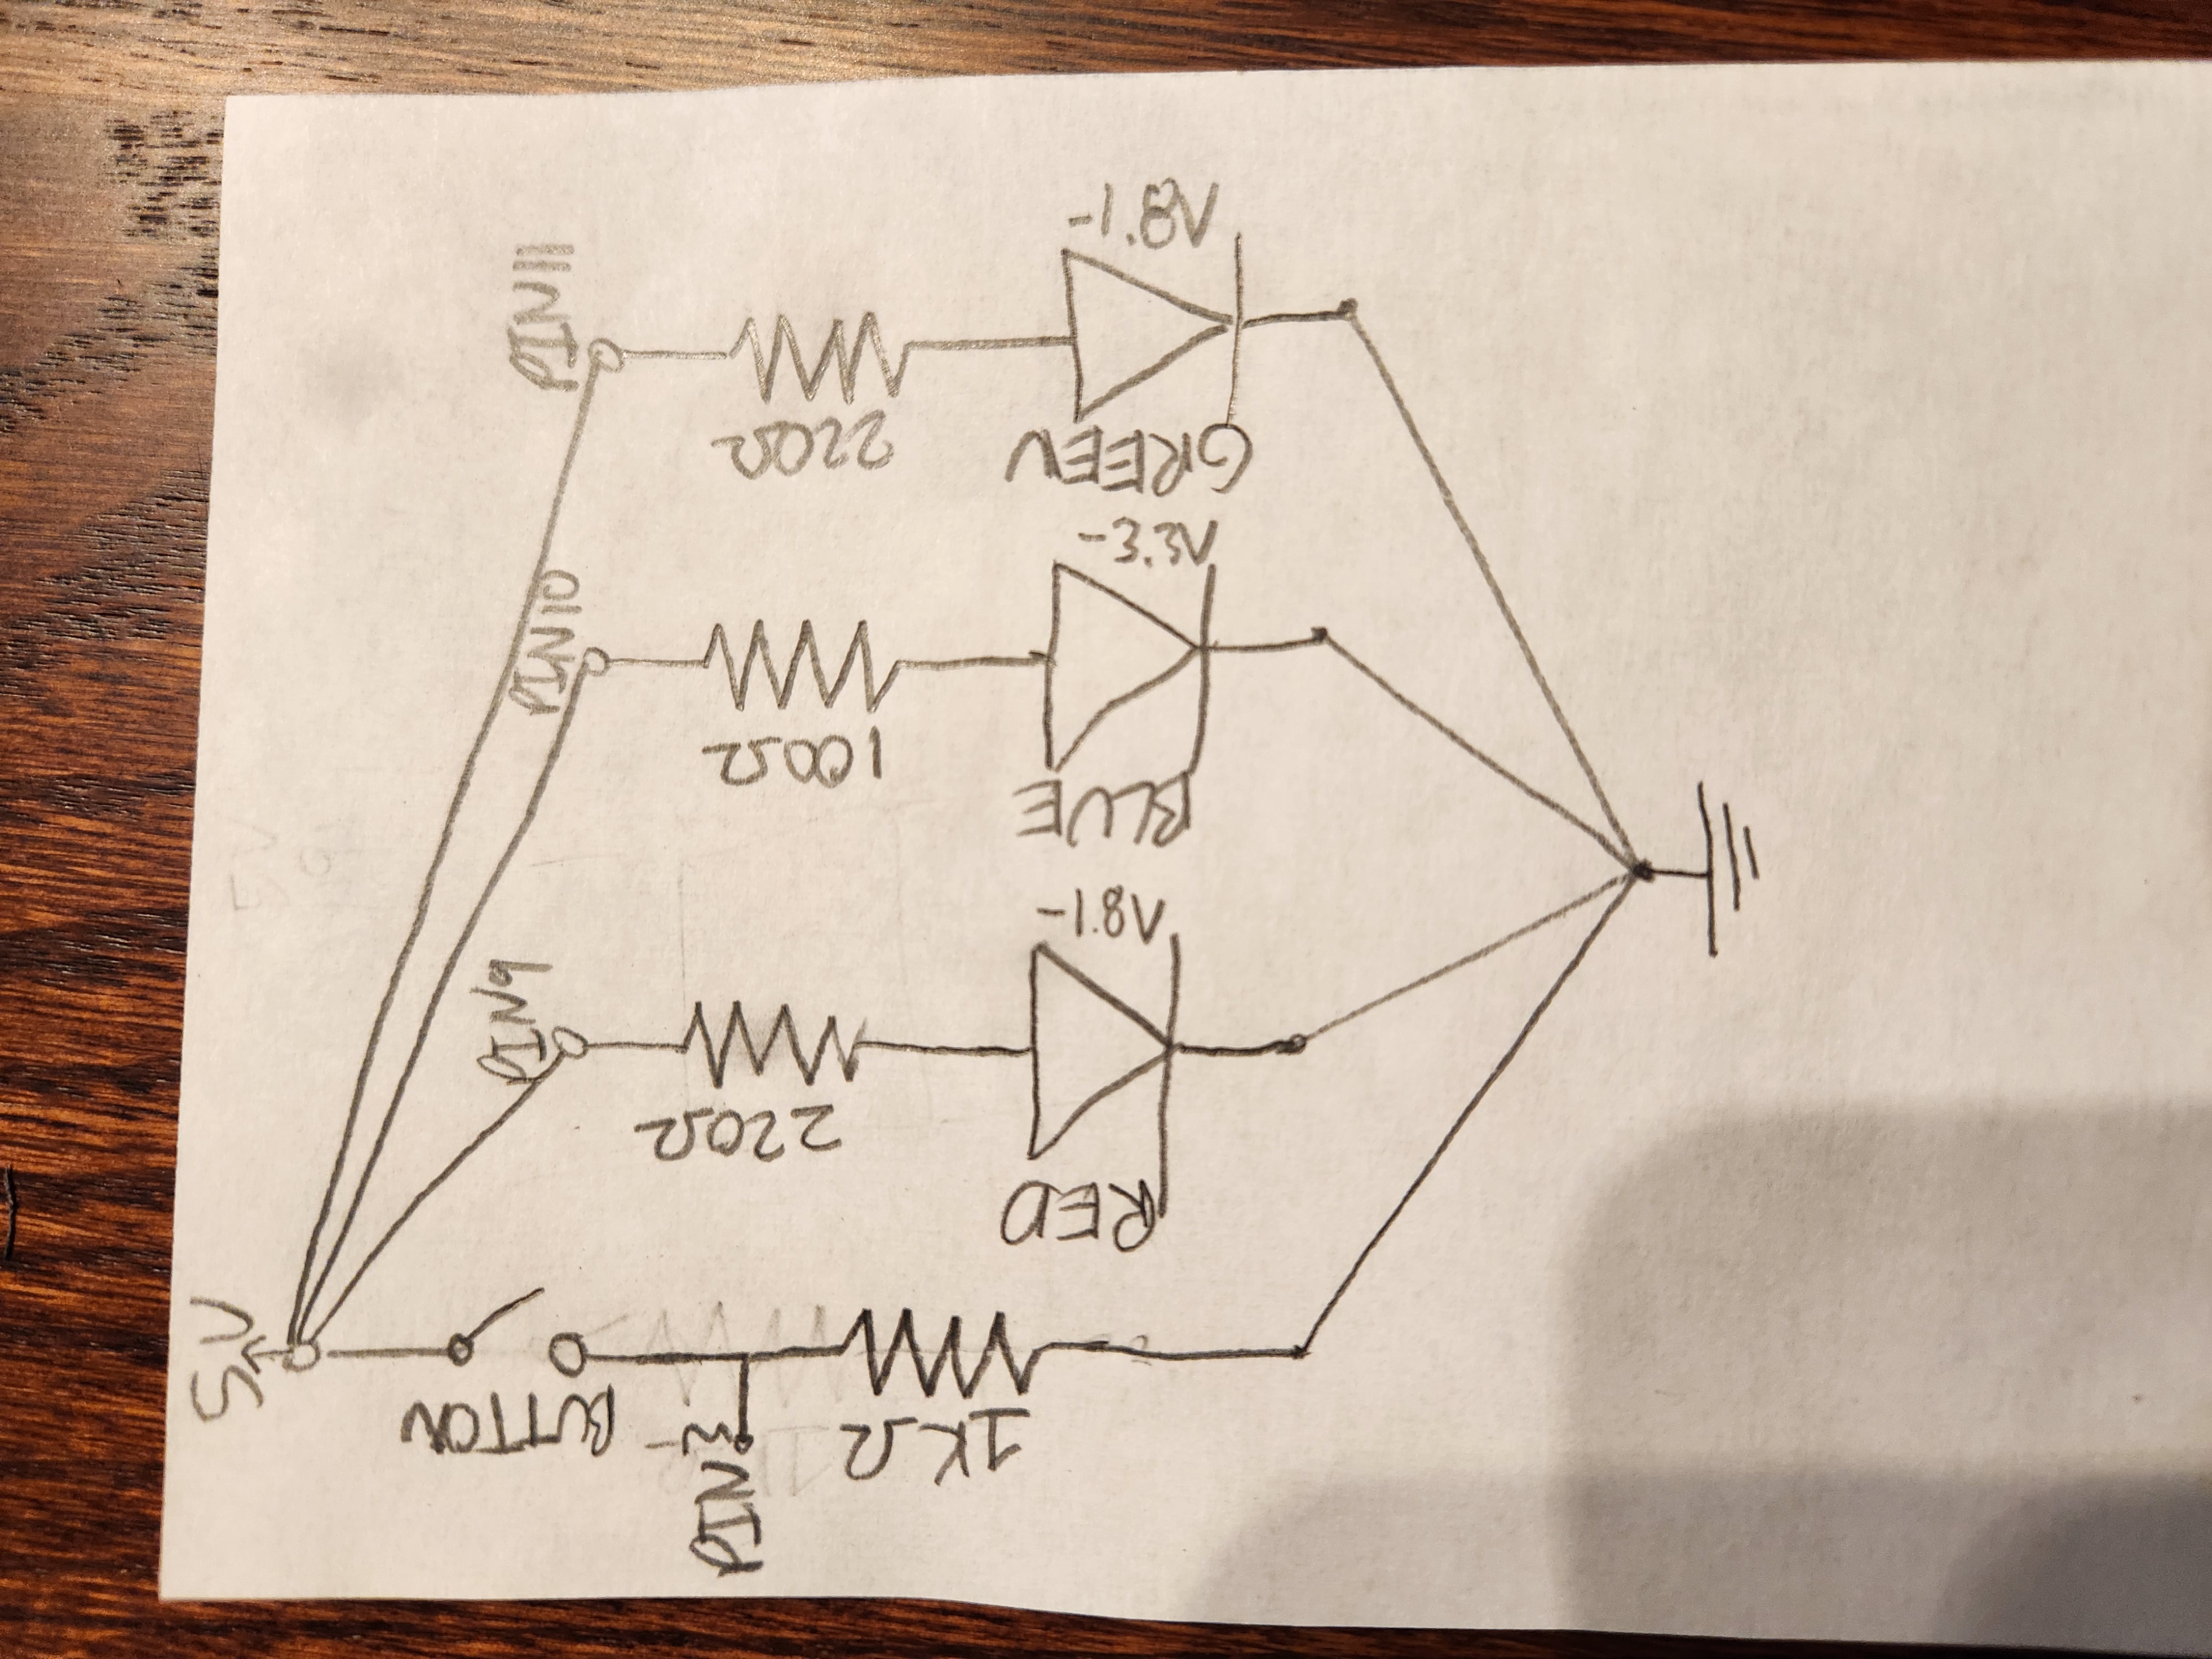 5V
BUTTON
PIN
1KΩ
PIN9
220Ω
RED
-1.8V
PIN10
100Ω
BLUE
-3.3V
PIN11
220Ω
GREEN
-1.8V